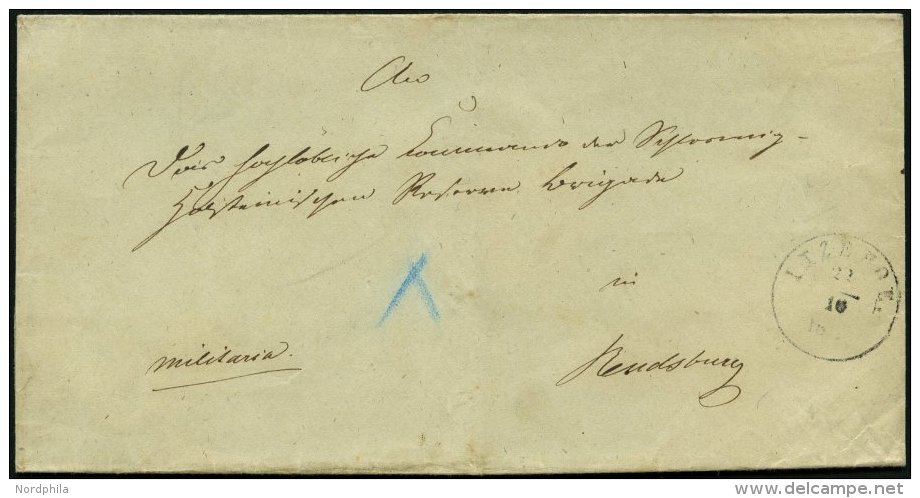 An
Das hochlöbliche Commando der Schleswig-
Holsteinischen Reserve Brigade
in
militaria.
Rendsburg
ITZEHOE
22
10
Nordphila
delcampe.net